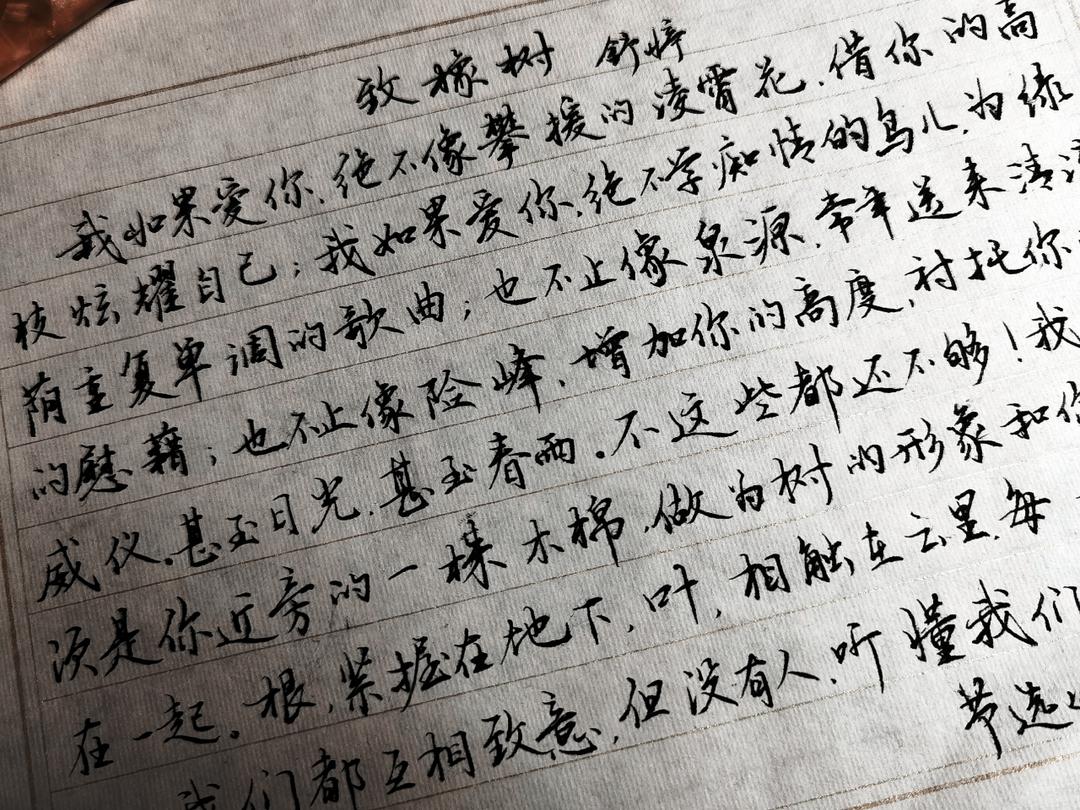 致橡树 舒婷
我如果爱你,绝不像攀援的凌霄花,借你的高
枝炫耀自己;我如果爱你,绝不学痴情的鸟儿,为绿
荫重复单调的歌曲;也不止像泉源,常年送来清凉
的慰藉;也不止像险峰,增加你的高度,衬托你
威仪。甚至日光,甚至春雨。不这些都还不够!我
须是你近旁的一棵木棉,做为树的形象和你
在一起。根,紧握在地下,叶,相触在云里,每
我们都互相致意,但没有人,听懂我们
节选